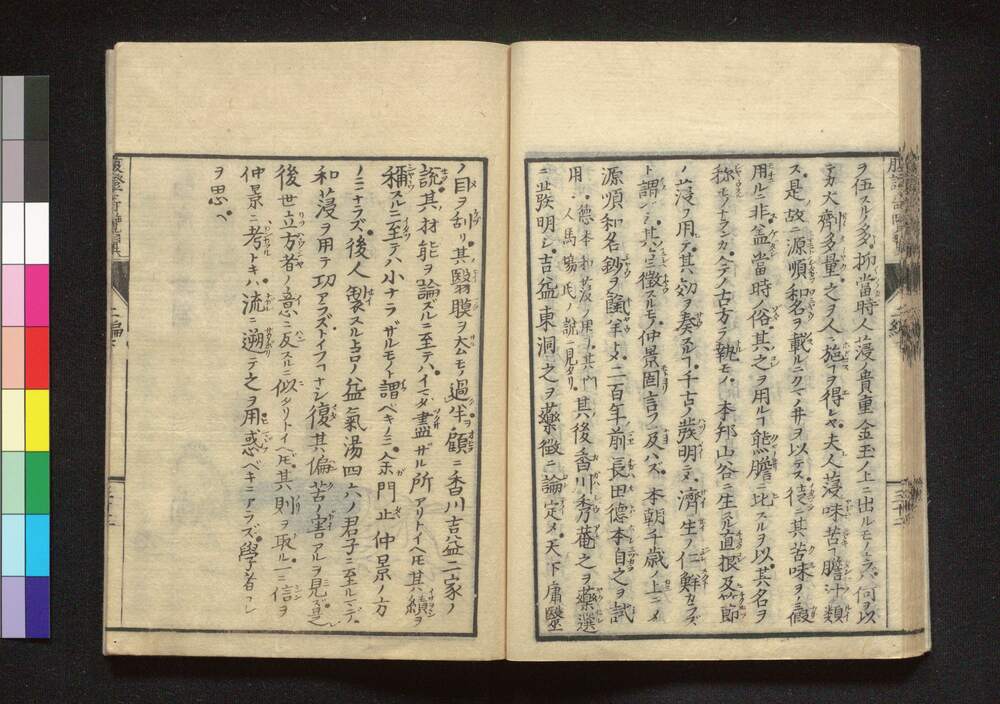 ヲ伍スルノ多シ抑當時人葠ノ貴重金玉ノ上ニ出ルモノナラバ何ヲ以
テカ大齊多量之ヲ人ニ施コヲ得レヤ夫人葠味苦膽汁ノ類
ス是故ニ源順和名ヲ載ルニクマノ井ヲ以テス徒ニ其苦味ヲノミ假
用ルニ非ズ蓋當時俗其之ヲ用ルコ熊膽ニ比スルヲ以其名ヲ
稱モノナランカ今ノ古方ヲ執モノ本邦山谷ニ生スル直根及竹節
ノ葠ヲ用テ其効ヲ奏スルコ千古ノ發明ニメ濟生ノ仁鮮カラズ
ト謂ベシ其之ヲ徴スルモノ仲景固言ヲ及ハズ本朝千歳ノ上ニメ
源順和名鈔ヲ
ニメ二百年前長田德本自之ヲ試
用德本和葠ノ用其門人馬場氏ノ說ニ見タリ其後香川秀菴之ヲ藥選
ニ發明シ吉益東洞之ヲ藥徴ニ論定メ天下庸醫
ノ目ヲ刮リ其翳膜ヲ去ムモノ過半ヲ顧ニ香川吉益二家ノ
說其材能ヲ論ズルニ至テハイマダ盡ザル所アリトイヘ𪜈其績ヲ
稱スルニ至テハ小ナラザルモノト謂ベキノミ余門止仲景ノ方
ノミナラズ後人製スル占ノ益氣湯四六ノ君子ニ至ルマデ
和葠ヲ用テ功アラズトイフコナシ復其偏苦ノ害アルヲ見ズ是
後世立方者ノ意ニ反スルニ似タリトイヘ𪜈其則ヲ取ル一ニ信ヲ
仲景ニ考トキハ流ニ遡テ之ヲ用惑ベキニアラズ學者コレ
ヲ思ベ
二編